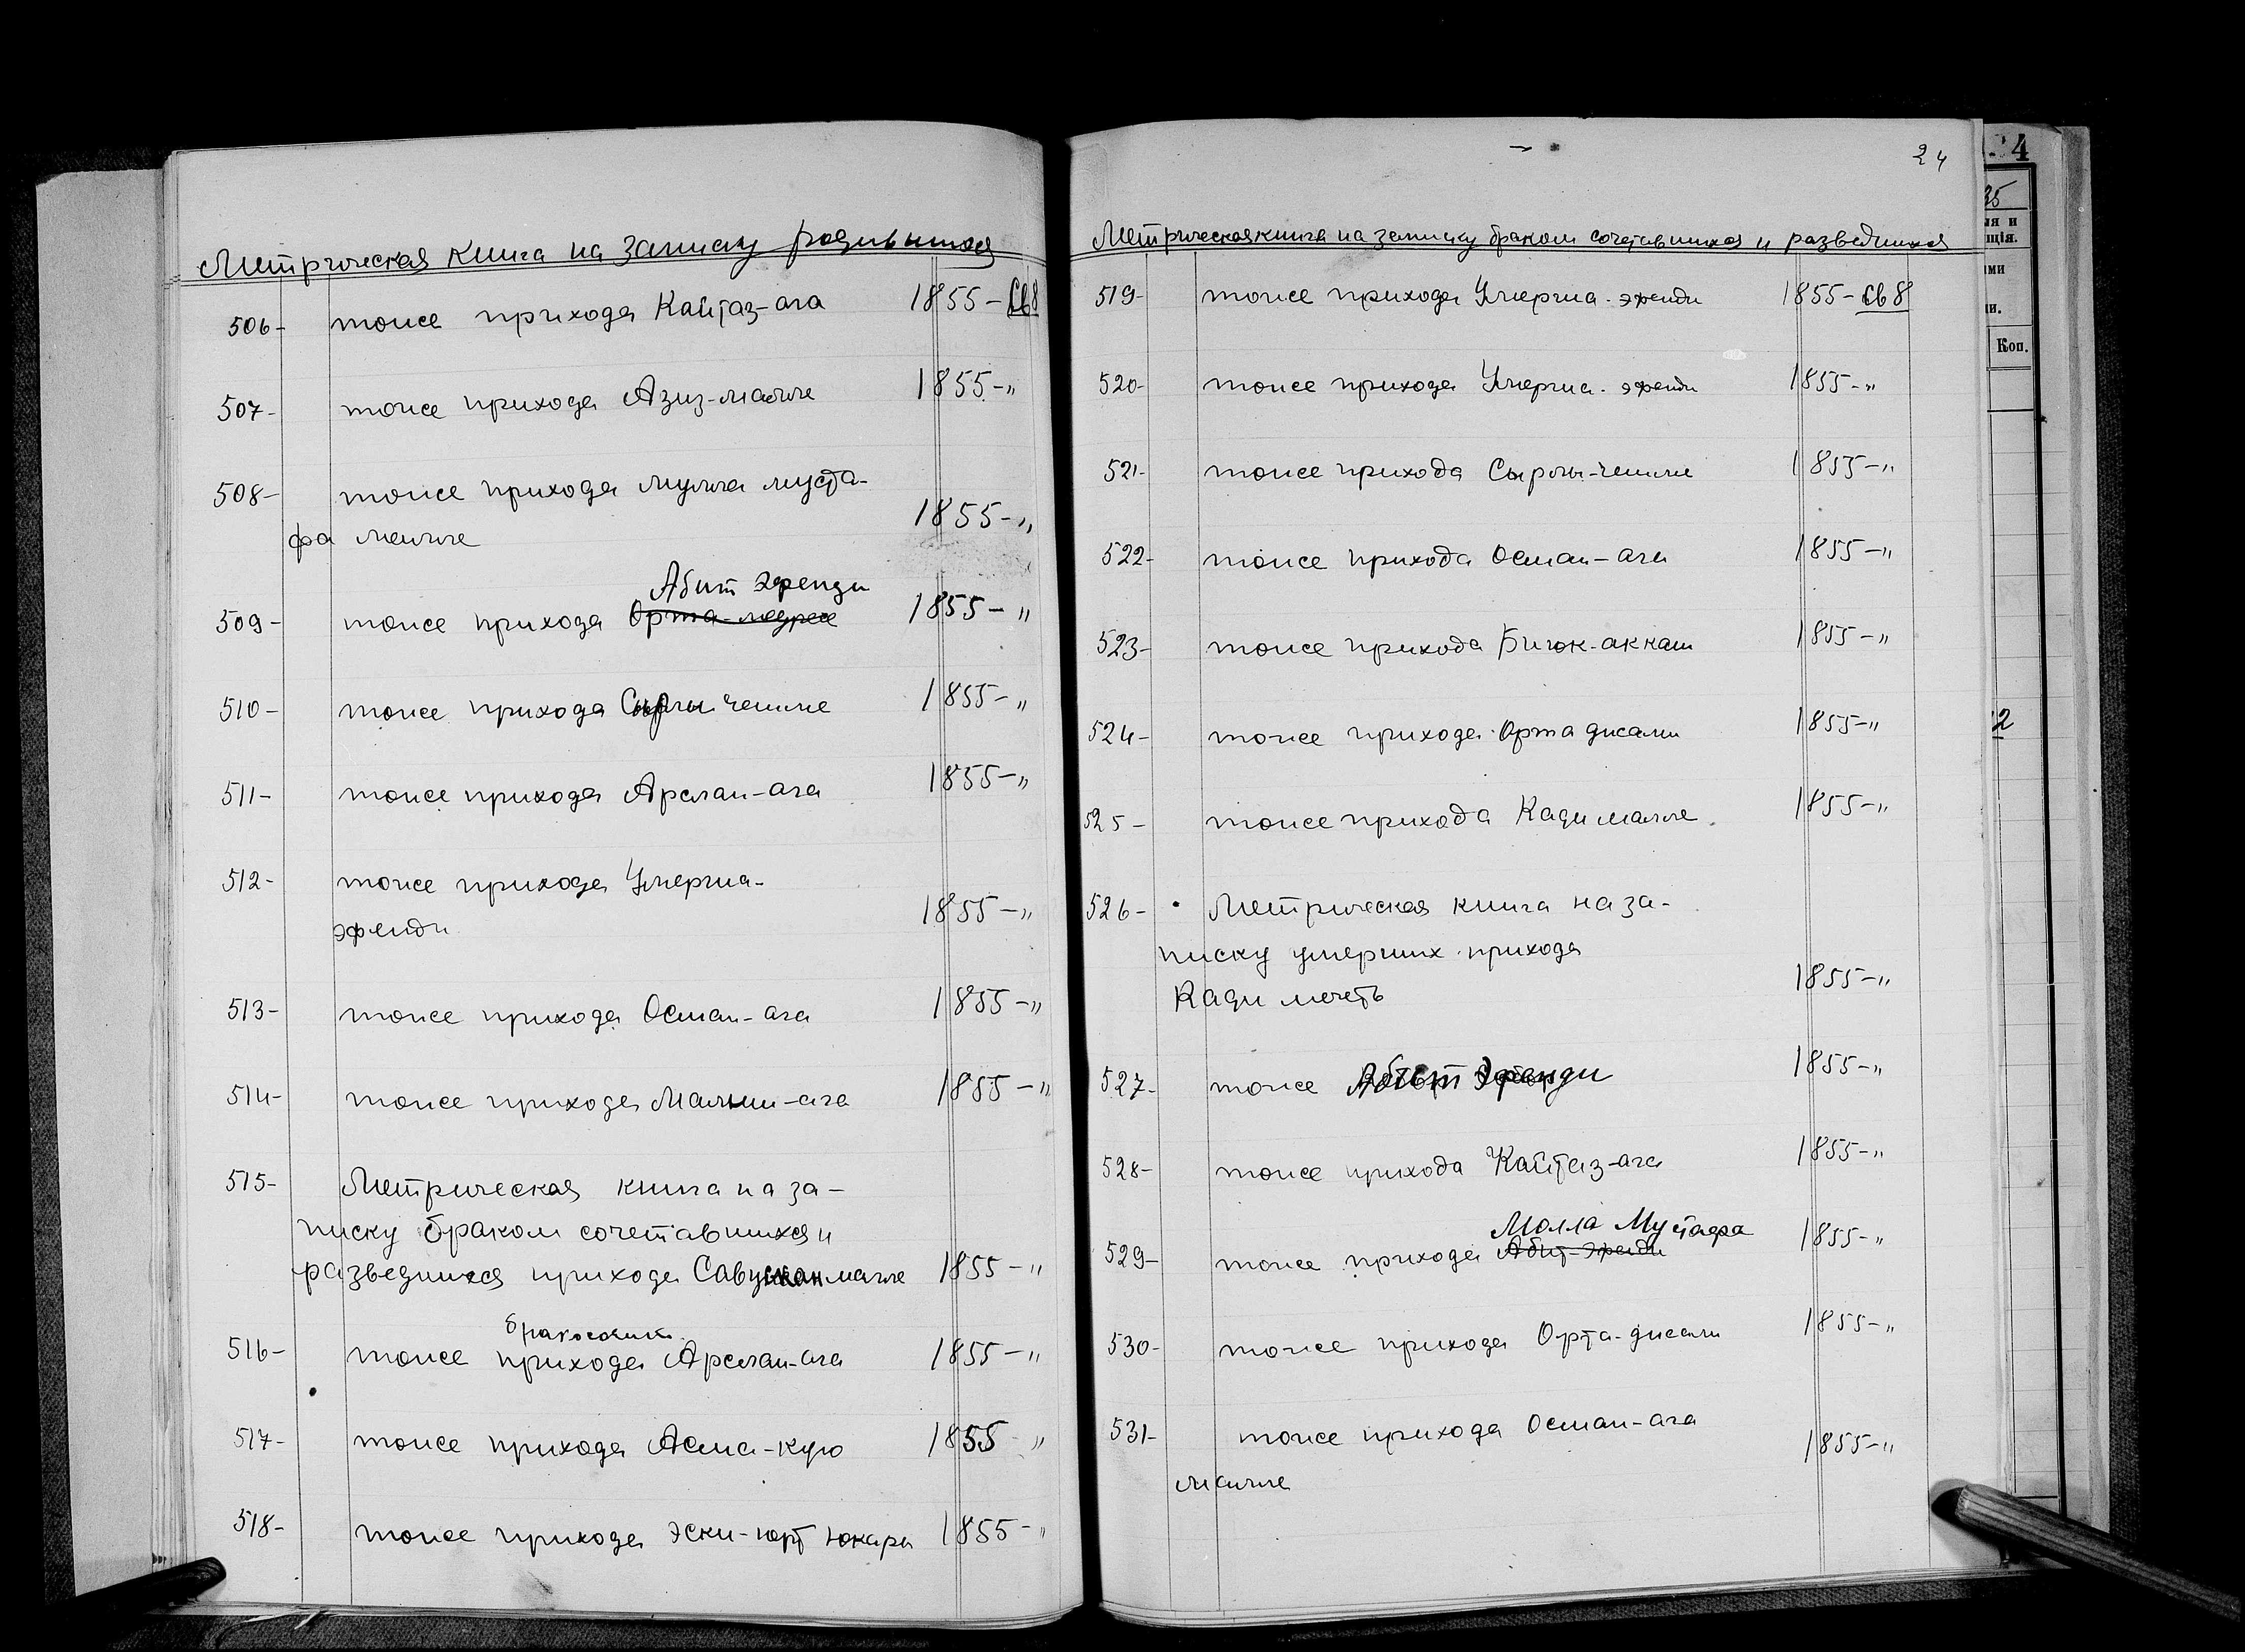 Метрическая книга на записку родившихся
506- тоже прихода Кайтаз-ага 1855-Св8
507- тоже прихода Азиз-малле 1855-"
508- тоже прихода мулла муста-
фа малле 1855-"
Абит Эфенди
509- тоже прихода Орта-медресе 1855-"
510- тоже прихода Сырлы чешме 1855-"
511- тоже прихода Арслан-ага 1855-"
512- тоже прихода Умерша-
эфенди 1855-"
513- тоже прихода Осман-ага 1855-"
514- тоже прихода Малыш-ага 1855-"
515- Метрическая книга на за-
писку браком сочетавшихся и
разведшихся прихода малле 1855-"
516- тоже прихода Арслан-ага 1855-"
517- тоже прихода Асма-кую 1855-"
518- тоже прихода Эски-юрт юкары 1855-"
24
Метрическая книга на записку браком сочетавшихся и разведшихся
519- тоже прихода Умерша-эфенди 1855-Св8
520- тоже прихода Умерша-эфенди 1855-"
521- тоже прихода Сырлы-чешме 1855-"
522- тоже прихода Осман-ага 1855-"
523- тоже прихода Биюк-аккаш 1855-"
524- тоже прихода Орта джами 1855-"
525- тоже прихода Кади малле 1855-"
526- Метрическая книга на за-
писку умерших прихода
Кади мечеть 1855-"
527- тоже Абит Эфенди 1855-"
528- тоже прихода Кайтаз-ага 1855-"
Молла Мустафа
529- тоже прихода Абит-эфенди 1855-"
530- тоже прихода Орта-джами 1855-"
531- тоже прихода Осман-ага
малле 1855-"
4
35
Коп.
2